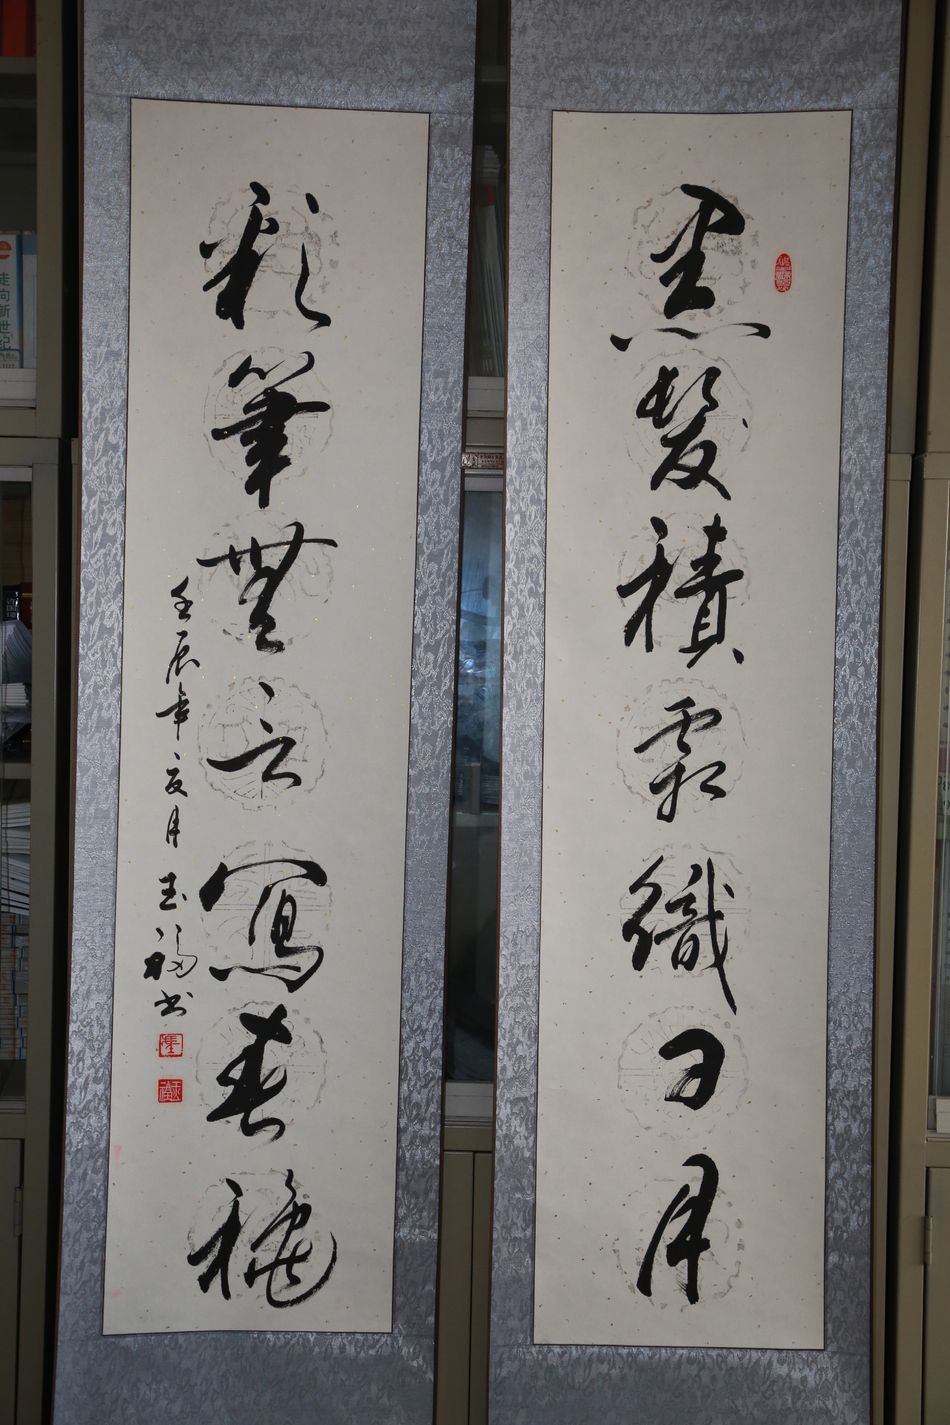 黑髮積霜織日月
彩筆無言寫春秋
壬辰年夏月
玉福书
走向新世纪